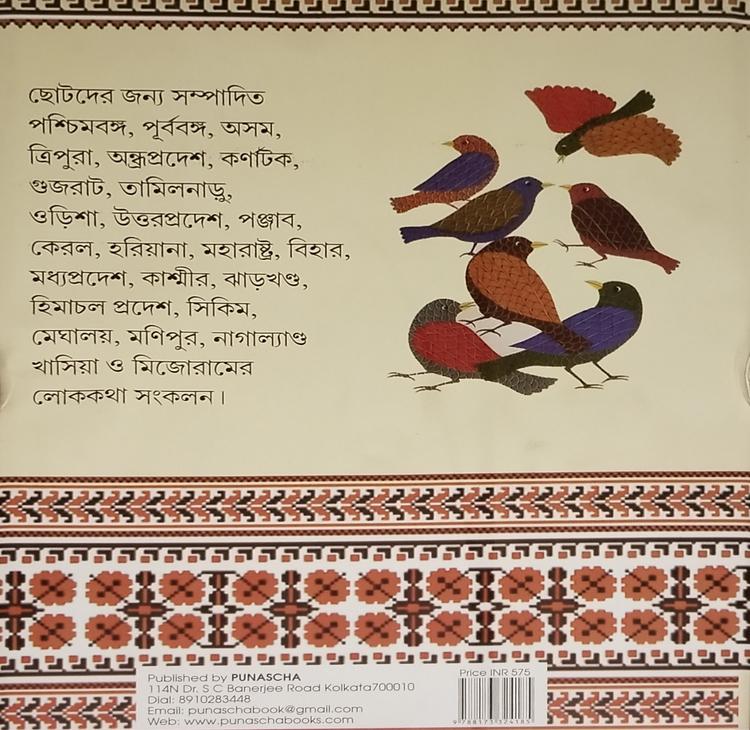 ছোটদের জন্য সম্পাদিত
পশ্চিমবঙ্গ, পূর্ববঙ্গ, অসম,
ত্রিপুরা, অন্ধ্রপ্রদেশ, কর্ণাটক,
গুজরাট, তামিলনাড়ু,
ওড়িশা, উত্তরপ্রদেশ, পঞ্জাব,
কেরল, হরিয়ানা, মহারাষ্ট্র, বিহার,
মধ্যপ্রদেশ, কাশ্মীর, ঝাড়খণ্ড,
হিমাচল প্রদেশ, সিকিম,
মেঘালয়, মণিপুর, নাগাল্যাণ্ড
খাসিয়া ও মিজোরামের
লোককথা সংকলন।
Published by PUNASCHA
114N Dr. S C Banerjee Road Kolkata700010
Dial: 8910283448
Email: punaschabook@gmail.com
Web: www.punaschabooks.com
Price INR 575
9 788173 324185